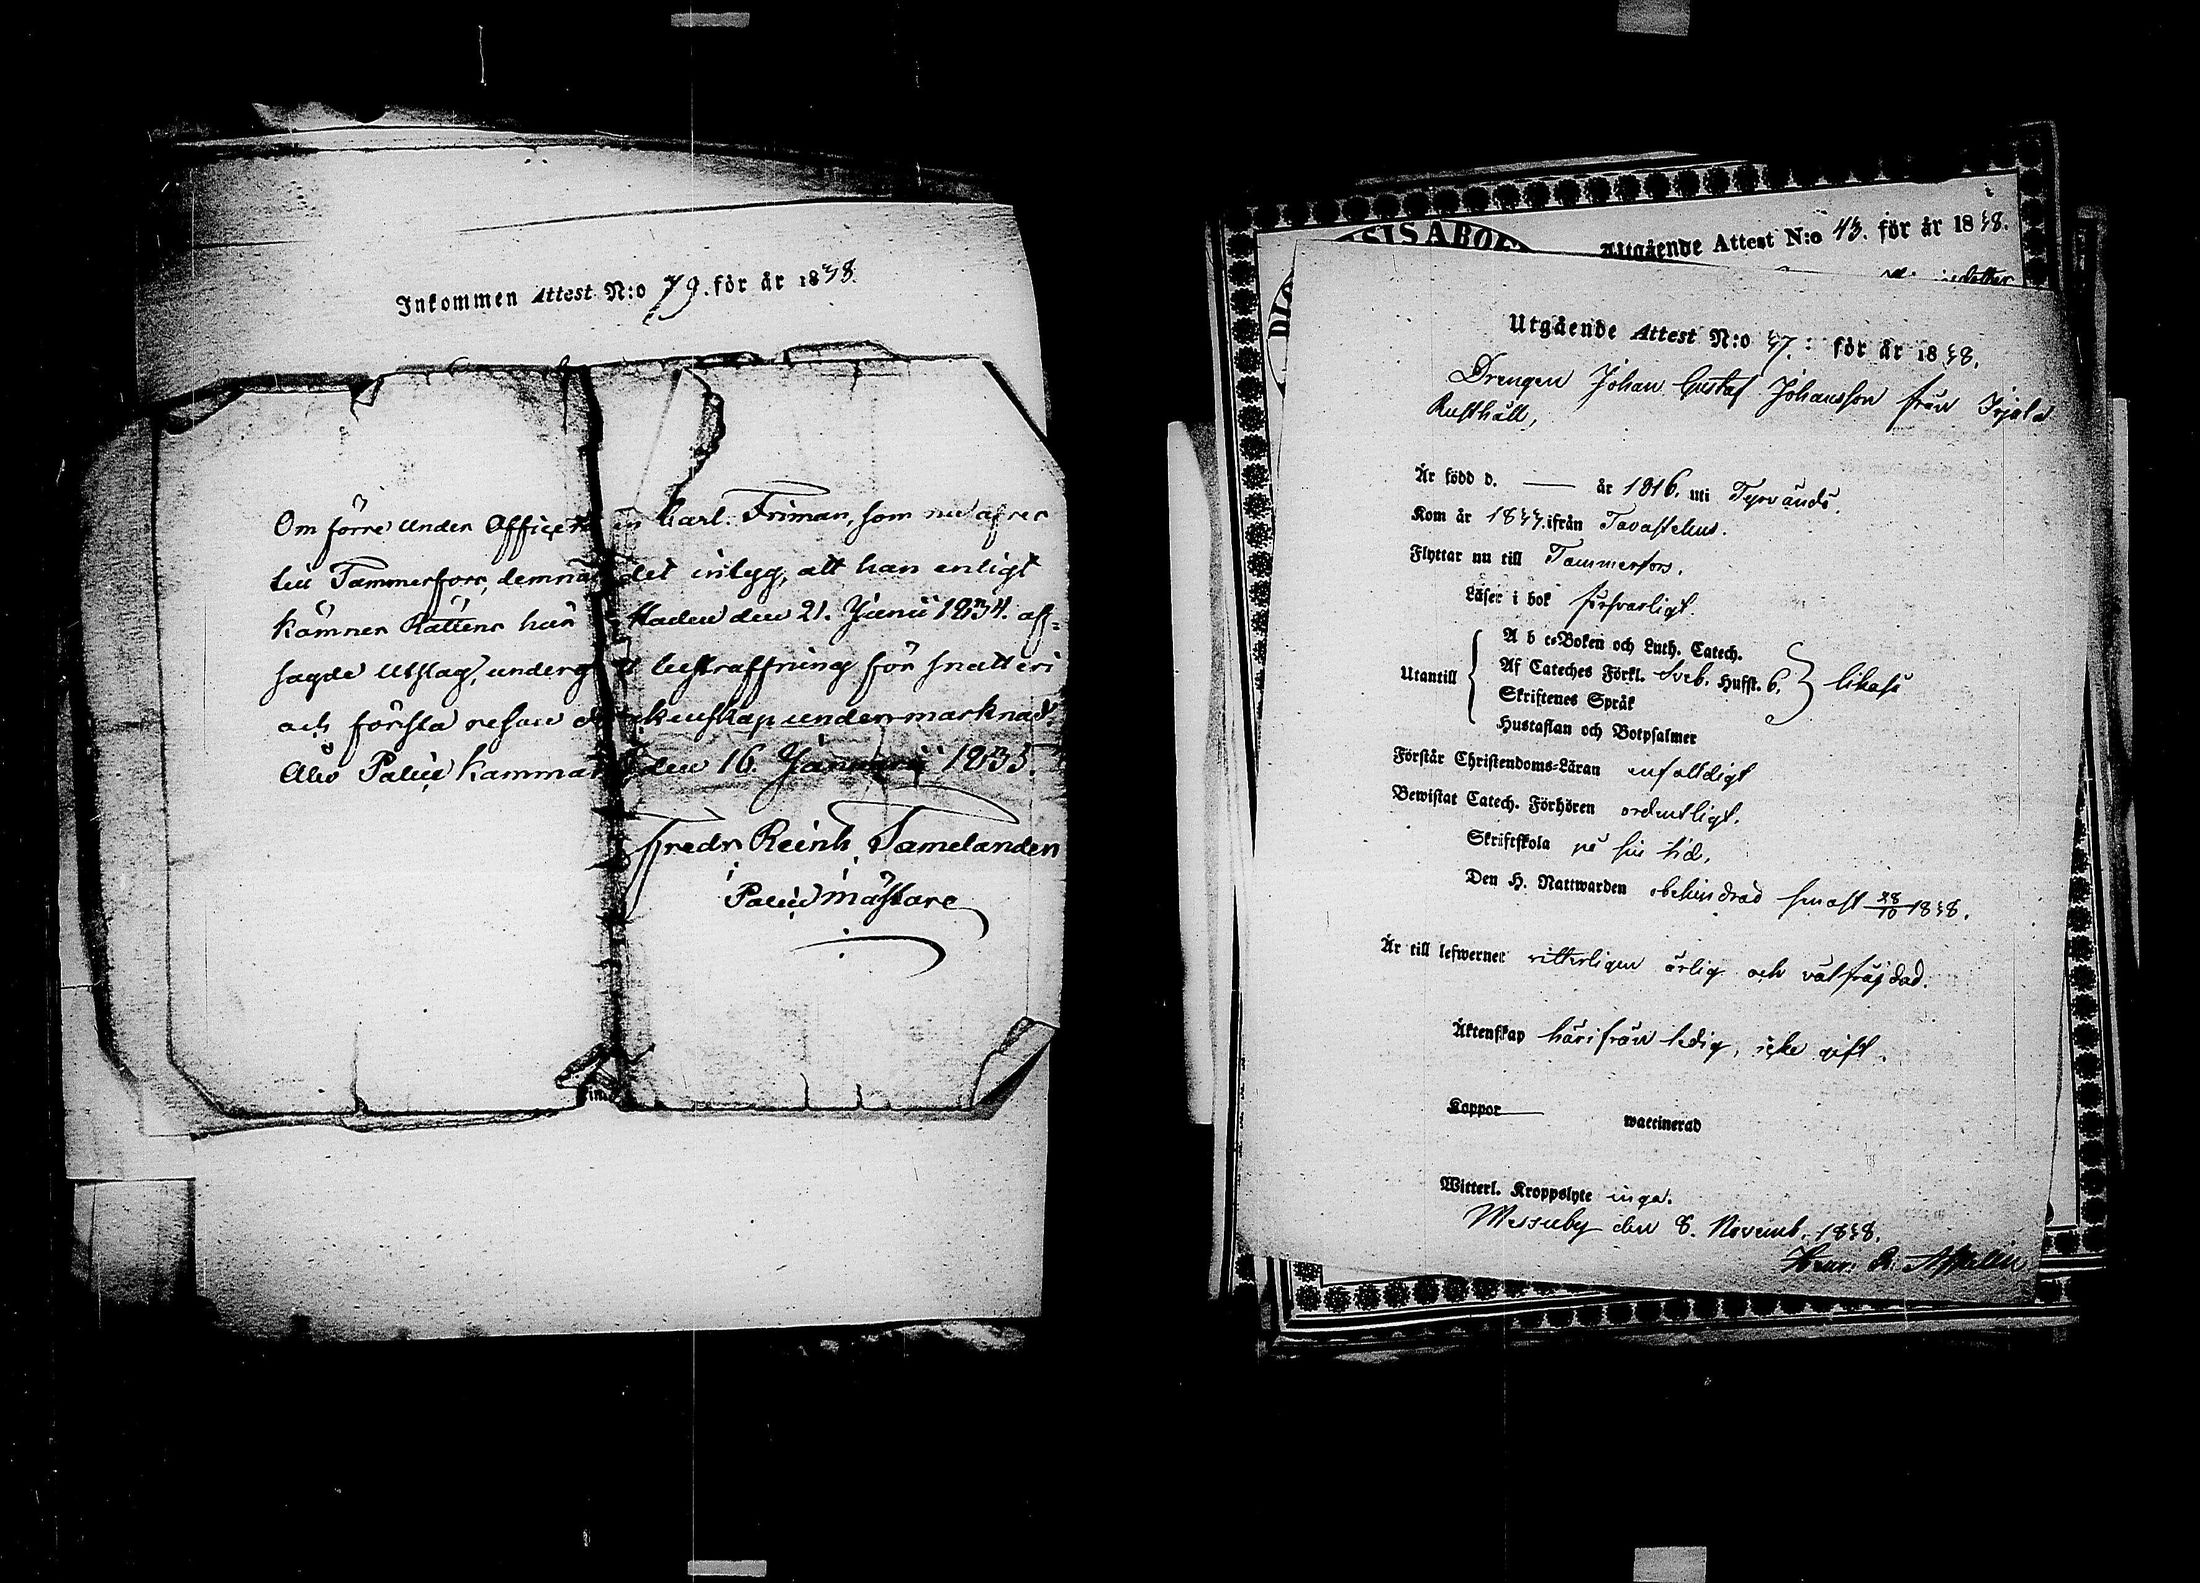 Inkommen Attest N:o 79. för år 1838.
Om förre Under Officeren Carl Friman, som nu afres
till Tammerfors, demnas det intyg, att han enligt
Kämners Rättens här i Staden den 21. Junii 1834. af-
sagde Utslag, undergått bestraffning för snatteri
och första resan under marknad.
Åbo Police Kammare den 16. Januarii 1835.
Fredr Reinh Tamelander
Police mästare
DIO SIS ABOE
Utgående Attest N:o 43. för år 1838.
Utgående Attest N:o 47. för år 1838.
Drengen Johan Gustaf Johansson från Irjala
Rusthåll,
Är född d. — år 1816. uti Tyrvändö.
Kom år 1837. ifrån Tavastehus.
Flyttar nu till Tammerfors.
Läser i bok försvarligt.
A b c-Boken och Luth. Catech.
Utantill Af Cateches Förkl. Sveb. Husst. 6. likaså
Skriftenes Språk
Hustaflan och Botpsalmer
Förstår Christendoms-Läran enfalldigt
Bewistat Catech. Förhören ordentligt.
Skriftskola på sin tid.
Den H. Nattwarden obehindrad senast 28/10 1838.
Är till lefwernet vitterligen ärlig och välfräjdad.
Äktenskap härifrån ledig, icke gift.
Koppor — waccinerad
Witterl. Kroppslyte inga.
Messuby den 8. Novemb. 1838.